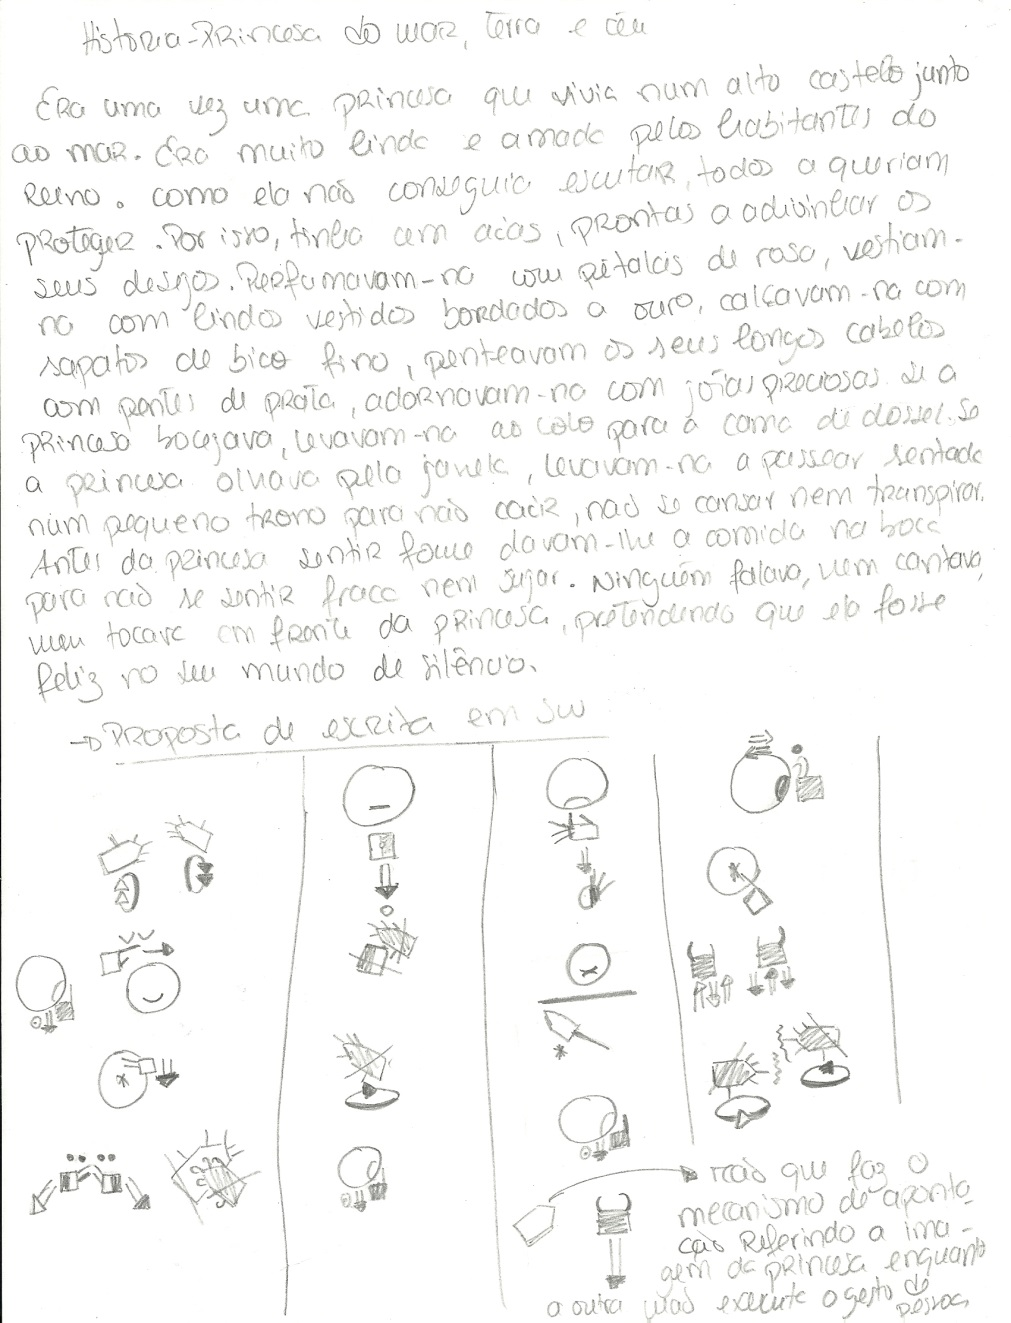 Historia - Princesa do mar, terra e céu
Era uma vez uma princesa que vivia num alto castelo junto
ao mar. Era muito linda e amada pelos habitantes do
Reino. como ela não conseguia escutar, todos a queriam
proteger. Por isso, tinha cem aias, prontas a adivinhar os
seus desejos. Perfumavam-na com pétalas de rosa, vestiam-
na com lindos vestidos bordados a ouro, calçavam-na com
sapatos de bico fino, penteavam os seus longos cabelos
com pentes de prata, adornavam-na com joias preciosas. Se a
princesa bocejava, levavam-na ao colo para a cama de dossel. Se
a princesa olhava pela janela, levavam-na a passear sentada
num pequeno trono para não cair, não se cansar nem transpirar.
Antes da princesa sentir fome davam-lhe a comida na boca
para não se sentir fraca nem sujar. Ninguém falava, nem cantava,
nem tocava em frente da princesa, pretendendo que ela fosse
feliz no seu mundo de silêncio.
→ Proposta de escrita em SW
mão que faz o
mecanismo de aponta
ção Referindo a ima-
gem da princesa enquanto
a outra mão executa o gesto de